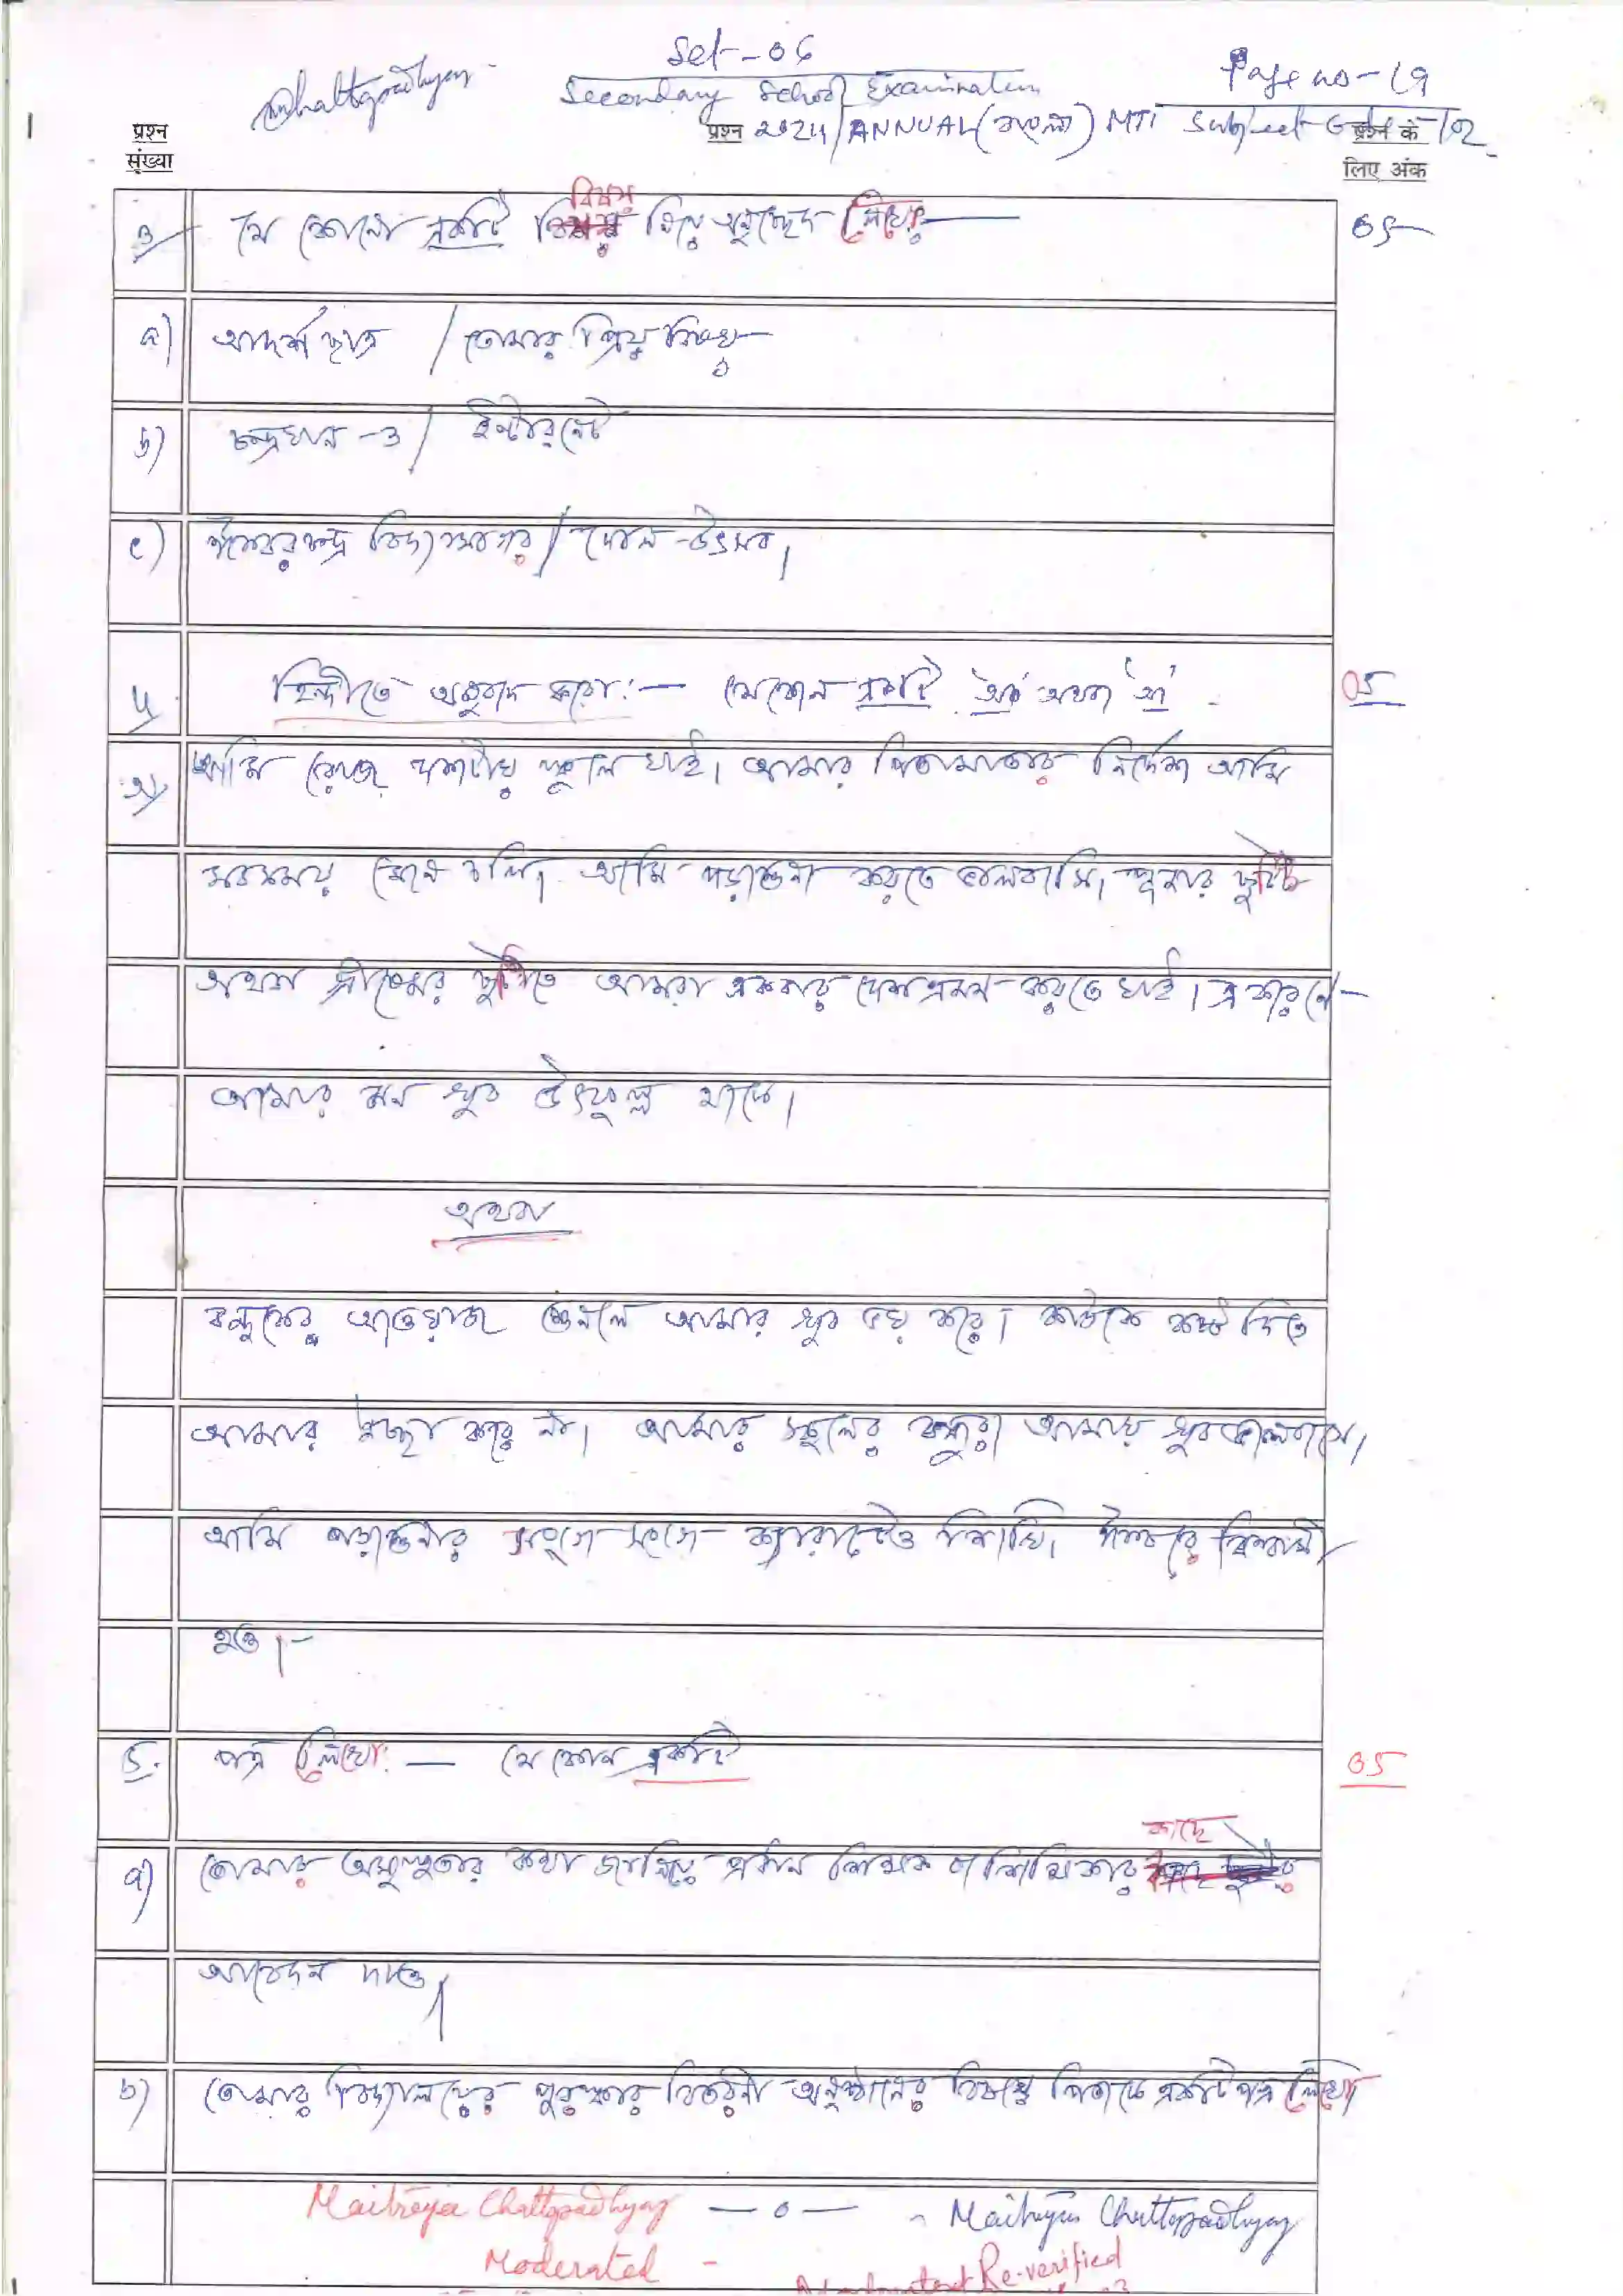 Set-06
Chattopadhyay
Page no-
Secondary School Examination
प्रश्न संख्या
प्रश्न 2024/ANNUAL(বাংলা) MTI Subject
प्रश्न के लिए अंक
যে কোনো একটি বিষয় নিয়ে অনুচ্ছেদ লিখো:— 05
a) আদর্শ ছাত্র / তোমার প্রিয় বিষয়
b) চন্দ্রযান -৩ / ইন্টারনেট
c) ঈশ্বরচন্দ্র বিদ্যাসাগর / দোল-উৎসব।
৪. হিন্দীতে অনুবাদ করো:— যেকোন একটি 'অ' অথবা 'আ' 05
অ) আমি রোজ দশটায় স্কুলে যাই। আমার পিতামাতার নির্দেশ আমি
সবসময় মেনে চলি। আমি পড়াশুনা করতে ভালবাসি। পূজার ছুটি
অথবা গ্রীষ্মের ছুটিতে আমরা একবার দেশভ্রমন করতে যাই। এ কারনে-
আমার মন খুব উৎফুল্ল থাকে।
অথবা
বন্দুকের আওয়াজ শুনলে আমার খুব ভয় করে। কাউকে কষ্ট দিতে
আমার ইচ্ছা করে না। আমার স্কুলের বন্ধুরা আমায় খুব ভালবাসে।
আমি পড়াশুনার সঙ্গে সঙ্গে ক্যারাটেও শিখি। ঈশ্বরে বিশ্বাসী
হও।-
5. পত্র লিখো:— যে কোন একটি 05
a) তোমার অসুস্থতার কথা জানিয়ে প্রধান শিক্ষক বা শিক্ষিকার কাছে
আবেদন দাও।
b) তোমার বিদ্যালয়ের পুরস্কার বিতরনী অনুষ্ঠানের বিষয়ে পিতাকে একটি পত্র লিখো
Maitreyee Chattopadhyay —০— Maitreyee Chattopadhyay
Moderated - Re-verified